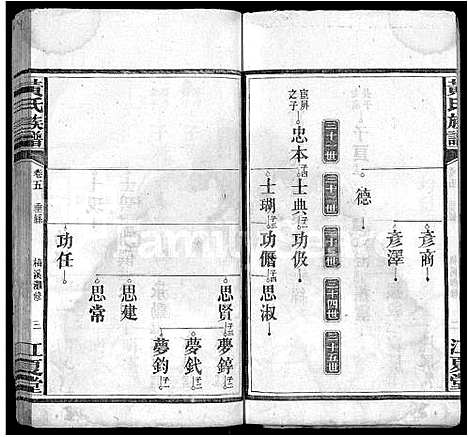 黃氏族譜
彥商
彥澤
德
三十一世
三十二世
三十三世
三十四世
三十五世
宸屏之子
忠本
士典
功伋
士瑚
功僭
思淑
思賢
夢錞
夢釴
思建
夢鈞
思常
功任
黃氏族譜
卷五 垂絲
三
江夏堂
江夏堂